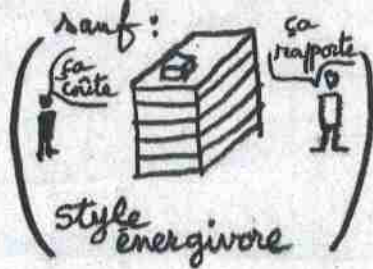 sauf :
ça
coûte
ça
rapporte
style
énergivore